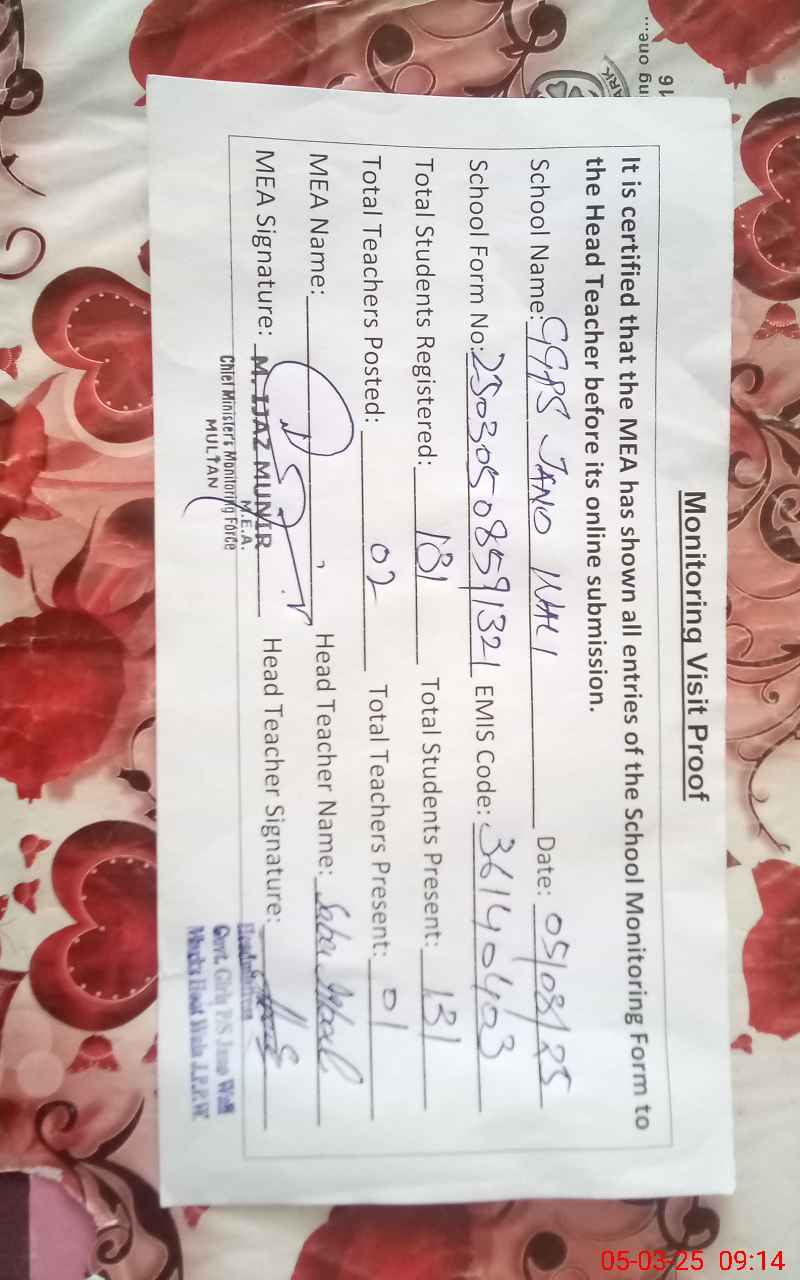 Monitoring Visit Proof
It is certified that the MEA has shown all entries of the School Monitoring Form to
the Head Teacher before its online submission.
School Name: GGPS JANO WALI Date: 05/03/25
School Form No: 25030508591321 EMIS Code: 36140403
Total Students Registered: 181 Total Students Present: 131
Total Teachers Posted: 02 Total Teachers Present: 01
MEA Name: Head Teacher Name:
MEA Signature: M. IJAZ MUNIR Head Teacher Signature:
M.E.A.
Chief Minister's Monitoring Force
MULTAN
Govt. Girls P/S Jano Wali
05-03-25 09:14